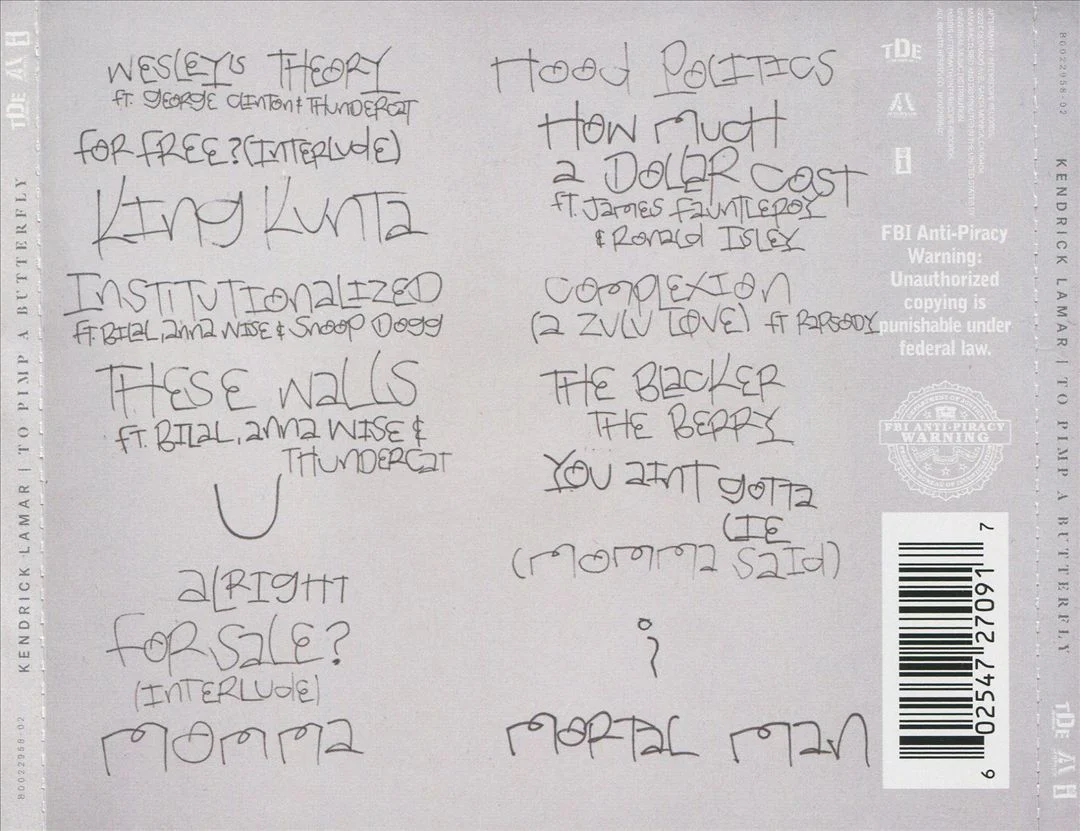 KENDRICK LAMAR | TO PIMP A BUTTERFLY
B0022958-02
TDE
WESLEY'S THEORY
ft. GEORGE CLINTON & THUNDERCAT
FOR FREE? (INTERLUDE)
KING KUNTA
INSTITUTIONALIZED
ft. BILAL, ANNA WISE & SNOOP DOGG
THESE WALLS
ft. BILAL, ANNA WISE &
THUNDERCAT
U
ALRIGHT
FOR SALE?
(INTERLUDE)
MOMMA
HOOD POLITICS
HOW MUCH
A DOLLAR COST
ft. JAMES FAUNTLEROY
& RONALD ISLEY
COMPLEXION
(A ZULU LOVE) ft RAPSODY
THE BLACKER
THE BERRY
YOU AINT GOTTA
LIE
(MOMMA SAID)
i
MORTAL MAN
TDE
FBI Anti-Piracy
Warning:
Unauthorized
copying is
punishable under
federal law.
FBI ANTI-PIRACY
WARNING
6 02547 27091 7
B0022958-02
KENDRICK LAMAR | TO PIMP A BUTTERFLY
TDE